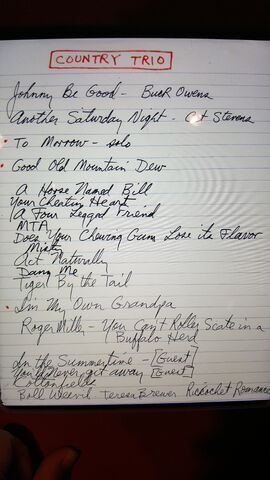 COUNTRY TRIO
Johnny Be Good - Buck Owens
Another Saturday Night - Cat Stevens
To Morrow - solo
Good Old Mountain Dew
A Horse Named Bill
Your Cheatin Heart
A Four Legged Friend
MTA
Does Your Chewing Gum Lose its Flavor
Misty
Act Naturally
Dang Me
Tiger By the Tail
I'm My Own Grandpa
Roger Miller - You Can't Roller Scate in a
Buffalo Herd
In the Summertime - [Guest]
You'll Never get away [Guest]
Kottonfields
Boll Weavil Teresa Brewer Ricochet Romance